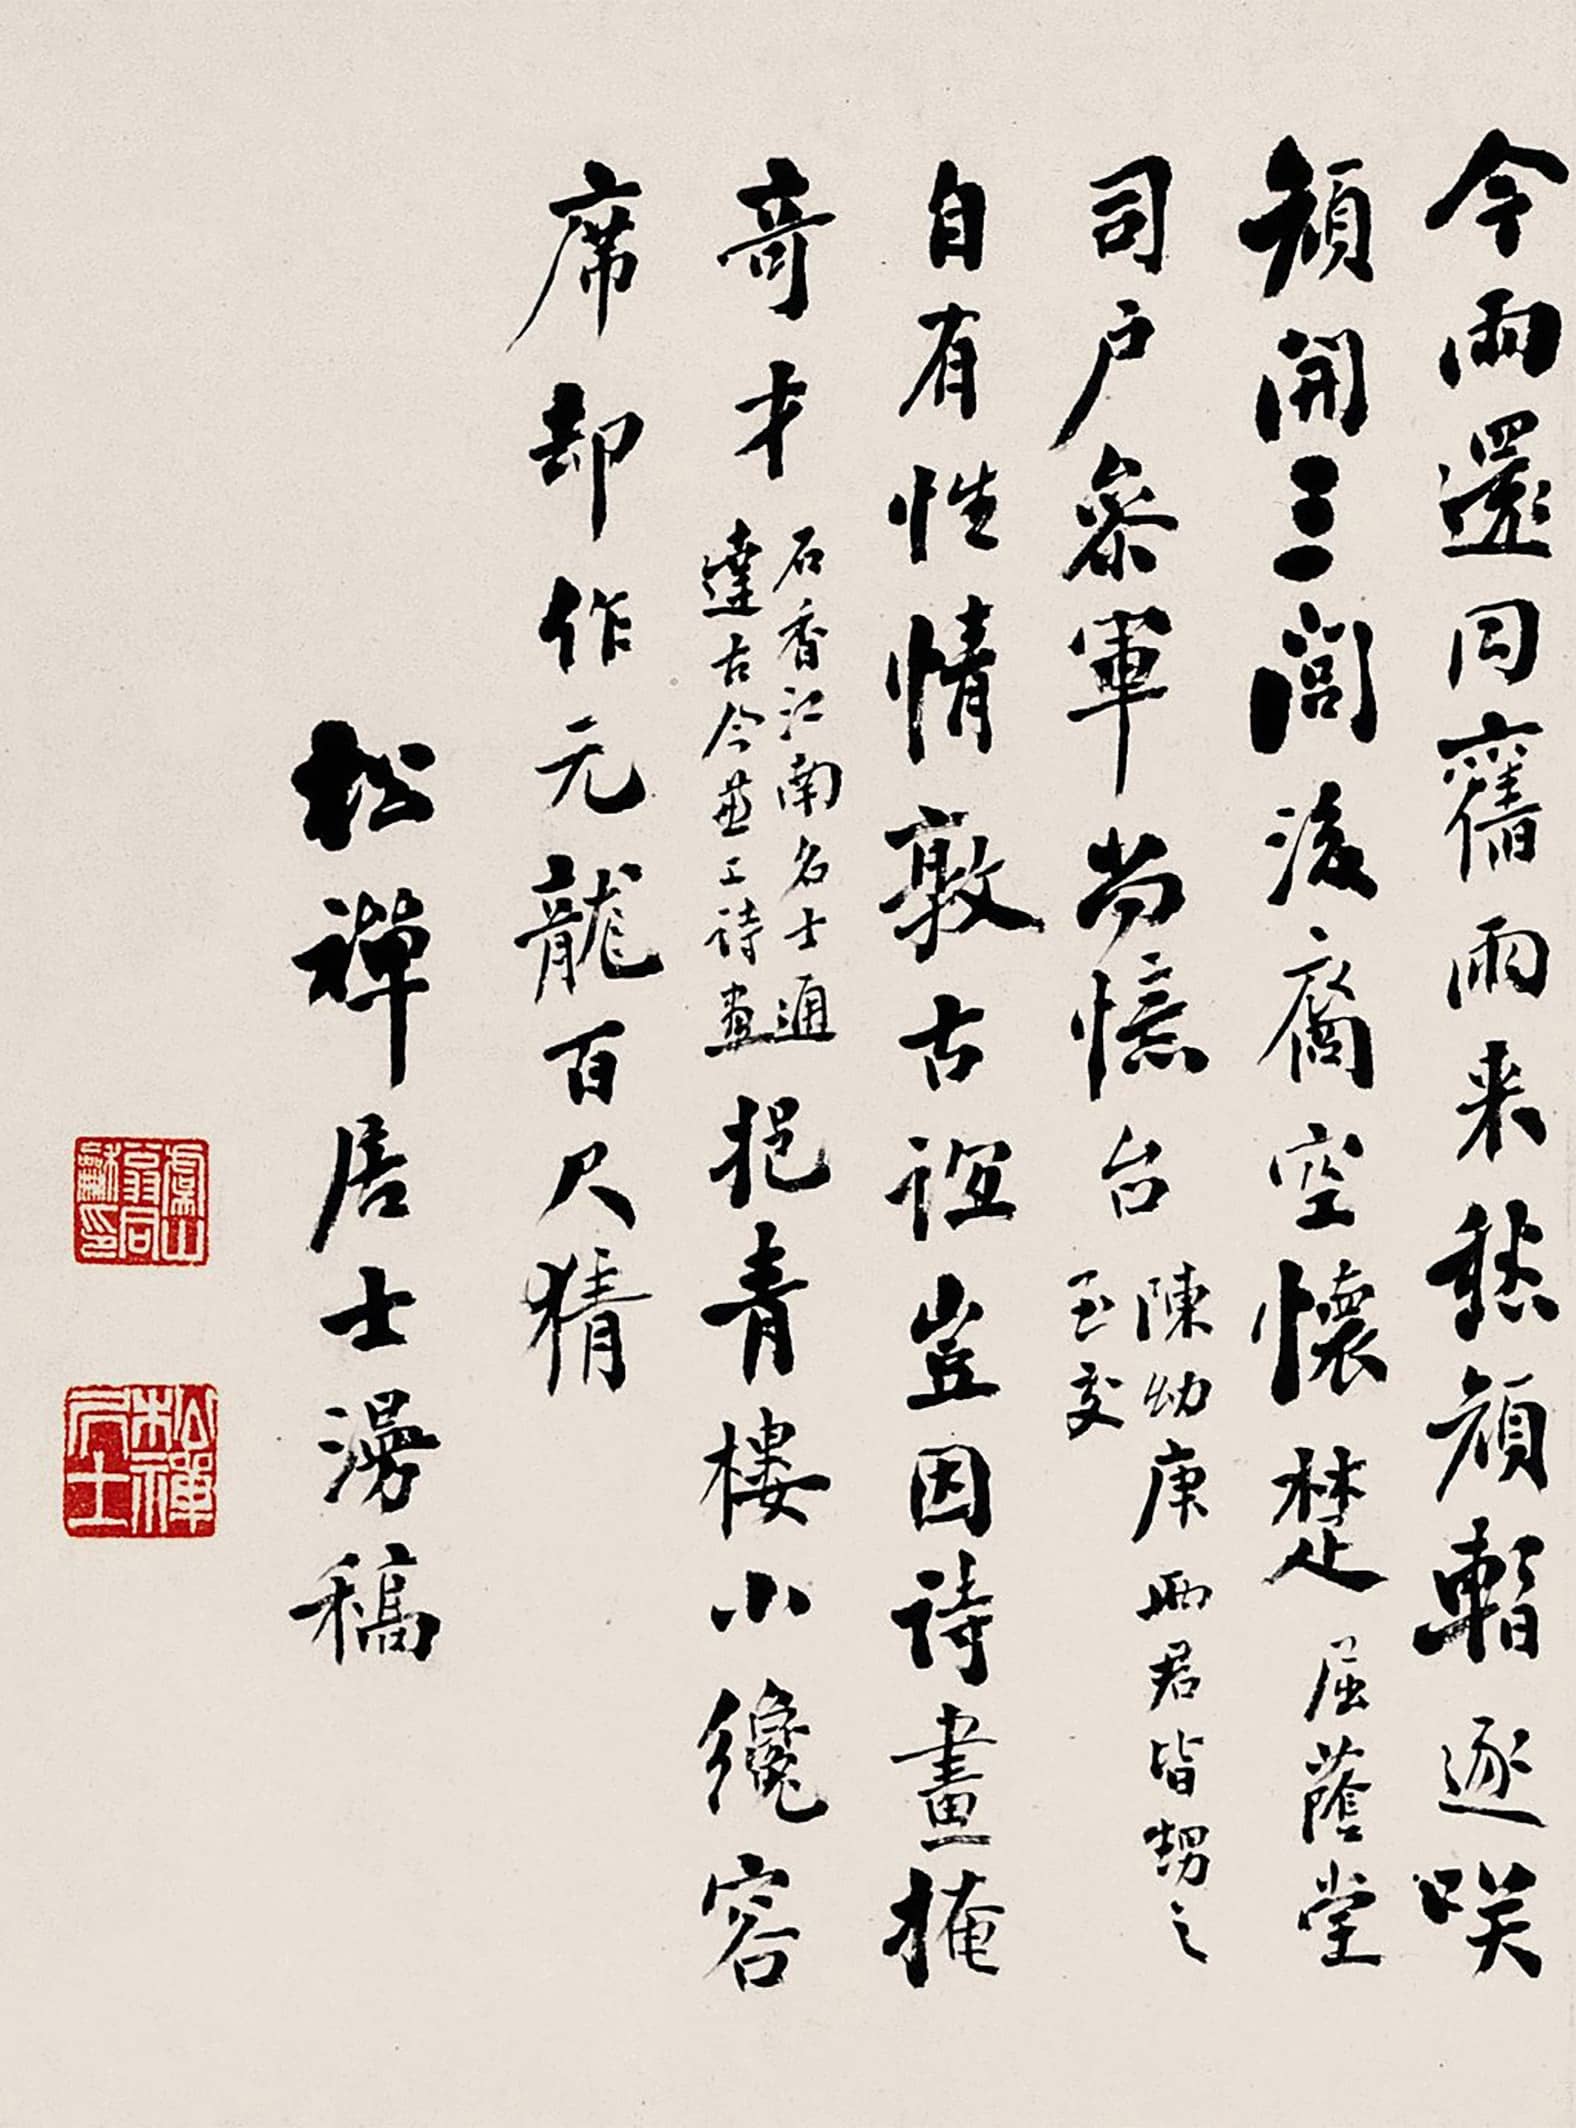 今雨還同舊雨来愁顔暫逐咲
顔開三閭後裔空懷楚屈蔭堂
司户參軍尚憶台陳幼庚兩君皆甥之至交
自有性情敦古誼豈因詩畫掩
奇才石香江南名士通達古今並工詩畫挹青樓小纔容
席却作元龍百尺猜
松禪居士漫稿
虞山翁同龢印
松禪居士